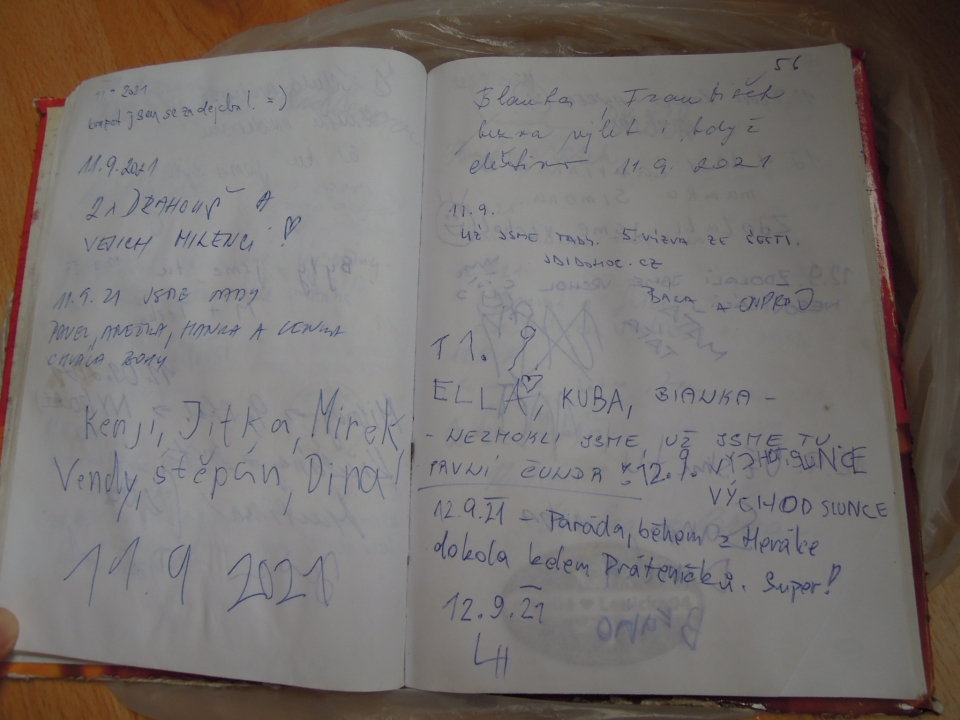 11 9 2021
jsem se zadejchal. =)
11.9.2021
2x DRAHOUŠ A
JEJICH MILENCI!
11.9.21 JSME TADY
PAVEL, ANEŽKA, HANKA A LENKA
CHVÁLA BOHU
Kenji, Jitka, Mirek,
Vendy, Štěpán, Dina!
11.9 2021
56
Blanka, František
výlet i když
11.9. 2021
11.9.
UŽ JSME TADY. 5. VÝZVA ZE ŠESTI.
JDIDOHOC.CZ
A ONDREJ
11. 9.
ELLA, KUBA, BIANKA -
- NEZMOKLI JSME, UŽ JSME TU.
PRVNÍ ČUNDR
12.9. VÝCHOD SLUNCE
12.9.21 - Paráda, během z Meráče
dokola kolem Práteníčků. Super!
12.9.21
LH